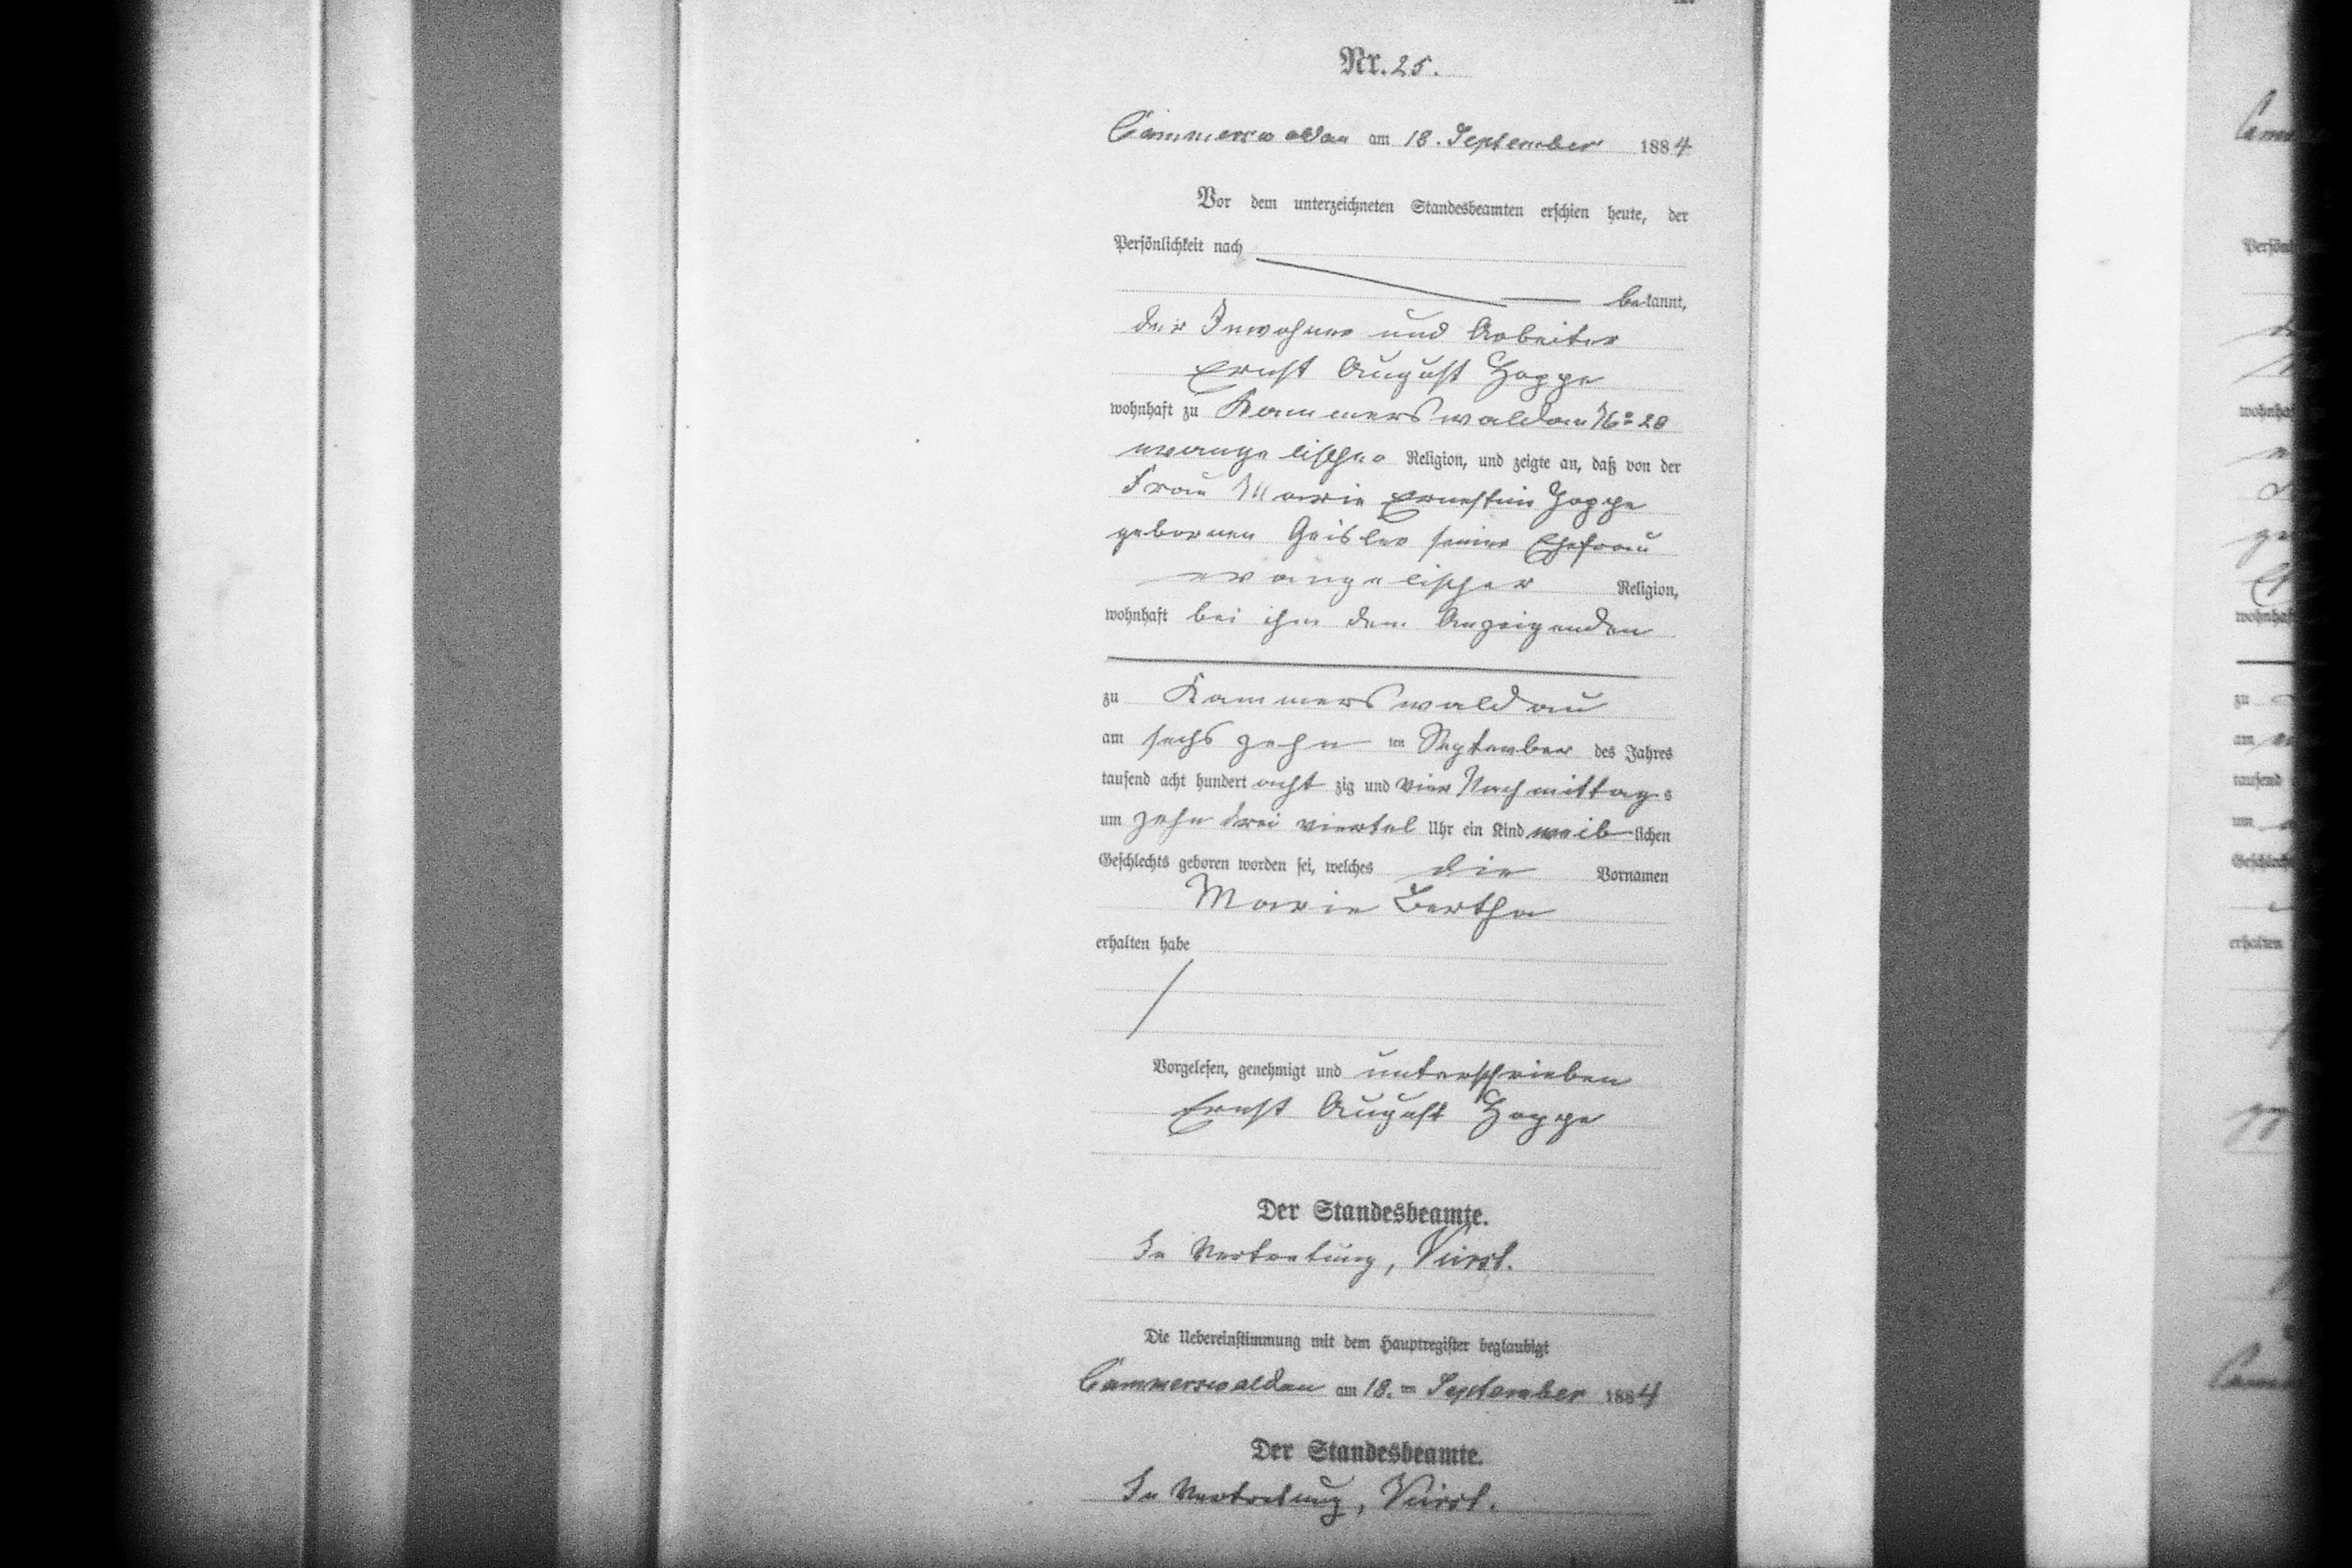 Nr. 25.
Cammerswaldau am 18. September 1884
Vor dem unterzeichneten Standesbeamten erschien heute, der
Persönlichkeit nach
bekannt,
der Inwohner und Arbeiter
Ernst August Hoppe
wohnhaft zu Kammerswaldau No 28
evangelischer Religion, und zeigte an, daß von der
Frau Marie Ernestine Hoppe
gebornen Geisler seiner Ehefrau
evangelischer Religion,
wohnhaft bei ihm dem Anzeigenden
zu Kammerswaldau
am sechszehn ten September des Jahres
tausend acht hundert acht zig und vier Nachmittags
um zehn drei viertel Uhr ein Kind weiblichen
Geschlechts geboren worden sei, welches die Vornamen
Marie Bertha
erhalten habe
Vorgelesen, genehmigt und unterschrieben
Ernst August Hoppe
Der Standesbeamte.
In Vertretung,
Die Uebereinstimmung mit dem Hauptregister beglaubigt
Cammerswaldau am 18. ten September 1884
Der Standesbeamte.
In Vertretung,